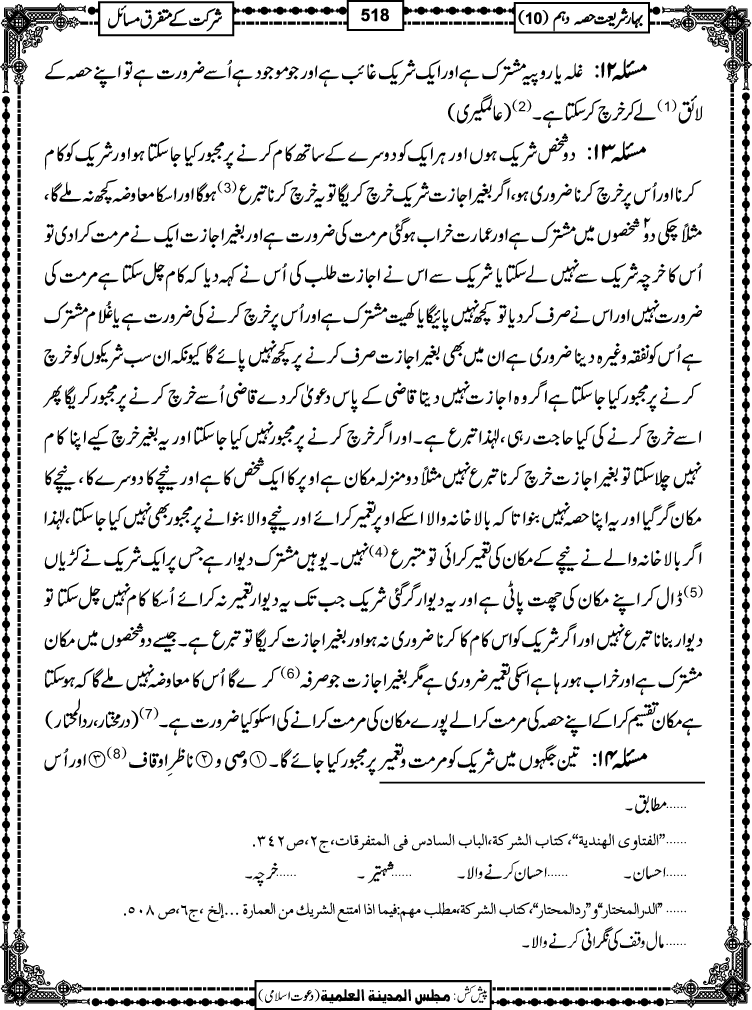 بہارِ شریعت حصہ دہم (10)
518
شرکت کے متفرق مسائل
مسئلہ ۱۲: غلہ یا روپیہ مشترک ہے اور ایک شریک غائب ہے اور جو موجود ہے اُسے ضرورت ہے تو اپنے حصہ کے
لائق(1) لے کر خرچ کرسکتا ہے۔(2) (عالمگیری)
مسئلہ ۱۳: دو شخص شریک ہوں اور ہر ایک کو دوسرے کے ساتھ کام کرنے پر مجبور کیا جاسکتا ہو اور شریک کو کام
کرنا اور اُس پر خرچ کرنا ضروری ہو، اگر بغیر اجازت شریک خرچ کریگا تو یہ خرچ کرنا تبرع(3) ہوگا اور اسکا معاوضہ کچھ نہ ملے گا،
مثلاً چکی دو۲ شخصوں میں مشترک ہے اور عمارت خراب ہوگئی مرمت کی ضرورت ہے اور بغیر اجازت ایک نے مرمت کرادی تو
اُس کا خرچہ شریک سے نہیں لے سکتا یا شریک سے اس نے اجازت طلب کی اُس نے کہہ دیا کہ کام چل سکتا ہے مرمت کی
ضرورت نہیں اور اس نے صرف کردیا تو کچھ نہیں پائیگا یا کھیت مشترک ہے اور اُس پر خرچ کرنے کی ضرورت ہے یا غُلام مشترک
ہے اُس کو نفقہ وغیرہ دینا ضروری ہے ان میں بھی بغیر اجازت صرف کرنے پر کچھ نہیں پائے گا کیونکہ ان سب شریکوں کو خرچ
کرنے پر مجبور کیا جاسکتا ہے اگر وہ اجازت نہیں دیتا قاضی کے پاس دعویٰ کردے قاضی اُسے خرچ کرنے پر مجبور کریگا پھر
اسے خرچ کرنے کی کیا حاجت رہی، لہٰذا تبرع ہے۔ اور اگر خرچ کرنے پر مجبور نہیں کیا جاسکتا اور یہ بغیر خرچ کیے اپنا کام
نہیں چلا سکتا تو بغیر اجازت خرچ کرنا تبرع نہیں مثلاً دو منزلہ مکان ہے اوپر کا ایک شخص کا ہے اور نیچے کا دوسرے کا، نیچے کا
مکان گرگیا اور یہ اپنا حصہ نہیں بنواتا کہ بالا خانہ والا اسکے اوپر تعمیر کرائے اور نیچے والا بنوانے پر مجبور بھی نہیں کیا جاسکتا، لہٰذا
اگر بالا خانہ والے نے نیچے کے مکان کی تعمیر کرائی تو متبرع(4) نہیں۔ یوہیں مشترک دیوار ہے جس پر ایک شریک نے کڑیاں
(5) ڈال کر اپنے مکان کی چھت پاٹی ہے اور یہ دیوار گرگئی شریک جب تک یہ دیوار تعمیر نہ کرائے اُسکا کام نہیں چل سکتا تو
دیوار بنانا تبرع نہیں اور اگر شریک کو اس کام کا کرنا ضروری نہ ہو اور بغیر اجازت کریگا تو تبرع ہے۔ جیسے دو شخصوں میں مکان
مشترک ہے اور خراب ہورہا ہے اسکی تعمیر ضروری ہے مگر بغیر اجازت جو صرفہ(6) کرے گا اُس کا معاوضہ نہیں ملے گا کہ ہوسکتا
ہے مکان تقسیم کرا کے اپنے حصہ کی مرمت کرالے پورے مکان کی مرمت کرانے کی اسکو کیا ضرورت ہے۔(7) (درمختار، ردالمحتار)
مسئلہ ۱۴: تین جگہوں میں شریک کو مرمت و تعمیر پر مجبور کیا جائے گا۔ ① وصی و ② ناظرِ اوقاف(8) ③ اور اُس
......مطابق۔
......"الفتاوی الھندیة"، کتاب الشرکة، الباب السادس فی المتفرقات، ج۲، ص۳۴۲.
......احسان۔ ......احسان کرنے والا۔ ......شہتیر۔ ......خرچہ۔
......"الدرالمختار" و "ردالمحتار"، کتاب الشرکة، مطلب مهم: فیما اذا امتنع الشریك من العمارة ...إلخ، ج٦، ص ۵۰۸.
......مال وقف کی نگرانی کرنے والا۔
پیش کش: مجلس المدینة العلمیة (دعوت اسلامی)